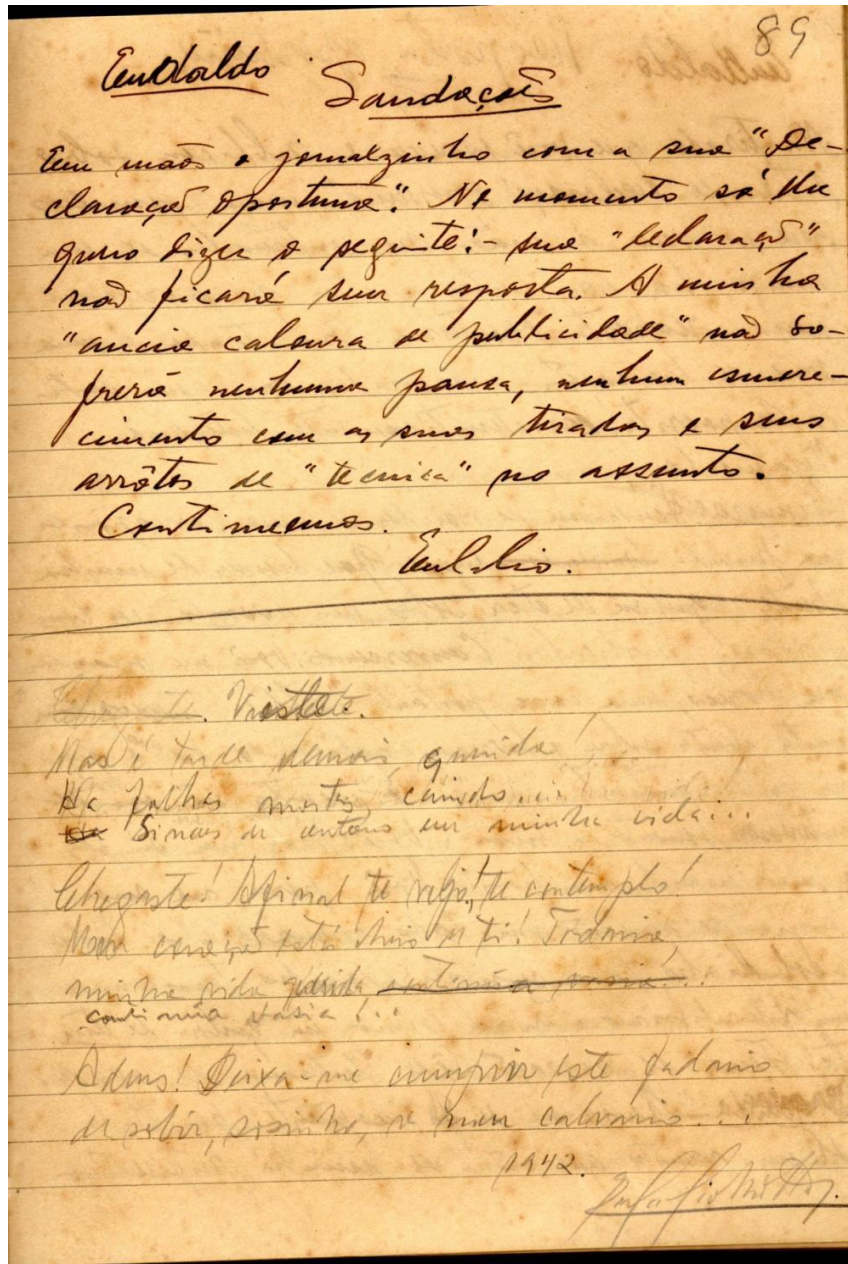 89
Eudaldo
Saudações
Em mãos o jornalzinho com a sua "De-
claração oportuna". No momento só lhe
quero dizer o seguinte:- sua "declaração"
não ficará sem resposta. A minha
"ancia caloura de publicidade" não so-
frerá nenhuma pausa, nenhum esmore-
cimento com as suas tiradas e seus
arrôtos de "tecnica" no assunto.
Continuemos.
Eulalio.
Viestete.
Mas é tarde demais, querida!
Ha folhas mortas, caindo...
Sinaes de outono em minha vida...
Chegaste! Afinal te vejo! te contemplo!
Meu coração está cheio de ti! Todavia,
minha vida, querida, continúa vasia!...
continúa vasia!...
Adeus! Deixa-me cumprir este fadario
de subir, sosinho, o meu calvario...
1942.
Eulalio Motta.